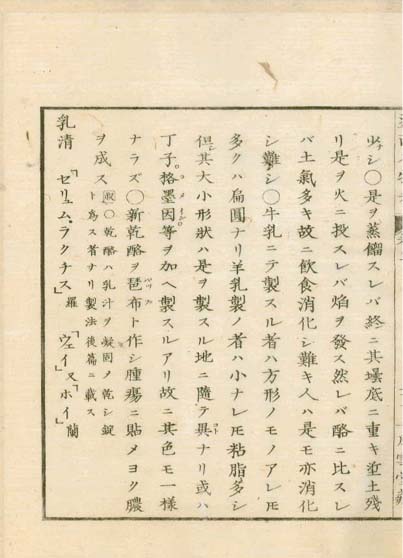 少シ〇是ヲ蒸餾スレバ終ニ其壜底ニ重キ埿土残
リ是ヲ火ニ投スレバ焰ヲ發ス然レバ酪ニ比スレ
バ土氣多キ故ニ飲食消化シ難キ人ハ是モ亦消化
シ難シ〇牛乳ニテ製スル者ハ方形ノモノアレ𪜈
多クハ扁圓ナリ羊乳製ノ者ハ小ナレ𪜈粘脂多シ
但其大小形狀ハ是ヲ製スル地ニ隨テ異ナリ或ハ
丁子。格墨因等ヲ加ヘ製スルアリ故ニ其色モ一様
ナラズ〇新乾酪ヲ琶布ト作シ腫瘍ニ貼メヨク膿
ヲ成ス 〇乾酪ハ乳汁ヲ凝固ノ乾シ錠
ト爲ス者ナリ製法後篇ニ載ス
乳清「セリュム、ラクチス」羅「ウェイ」又「ホイ」蘭